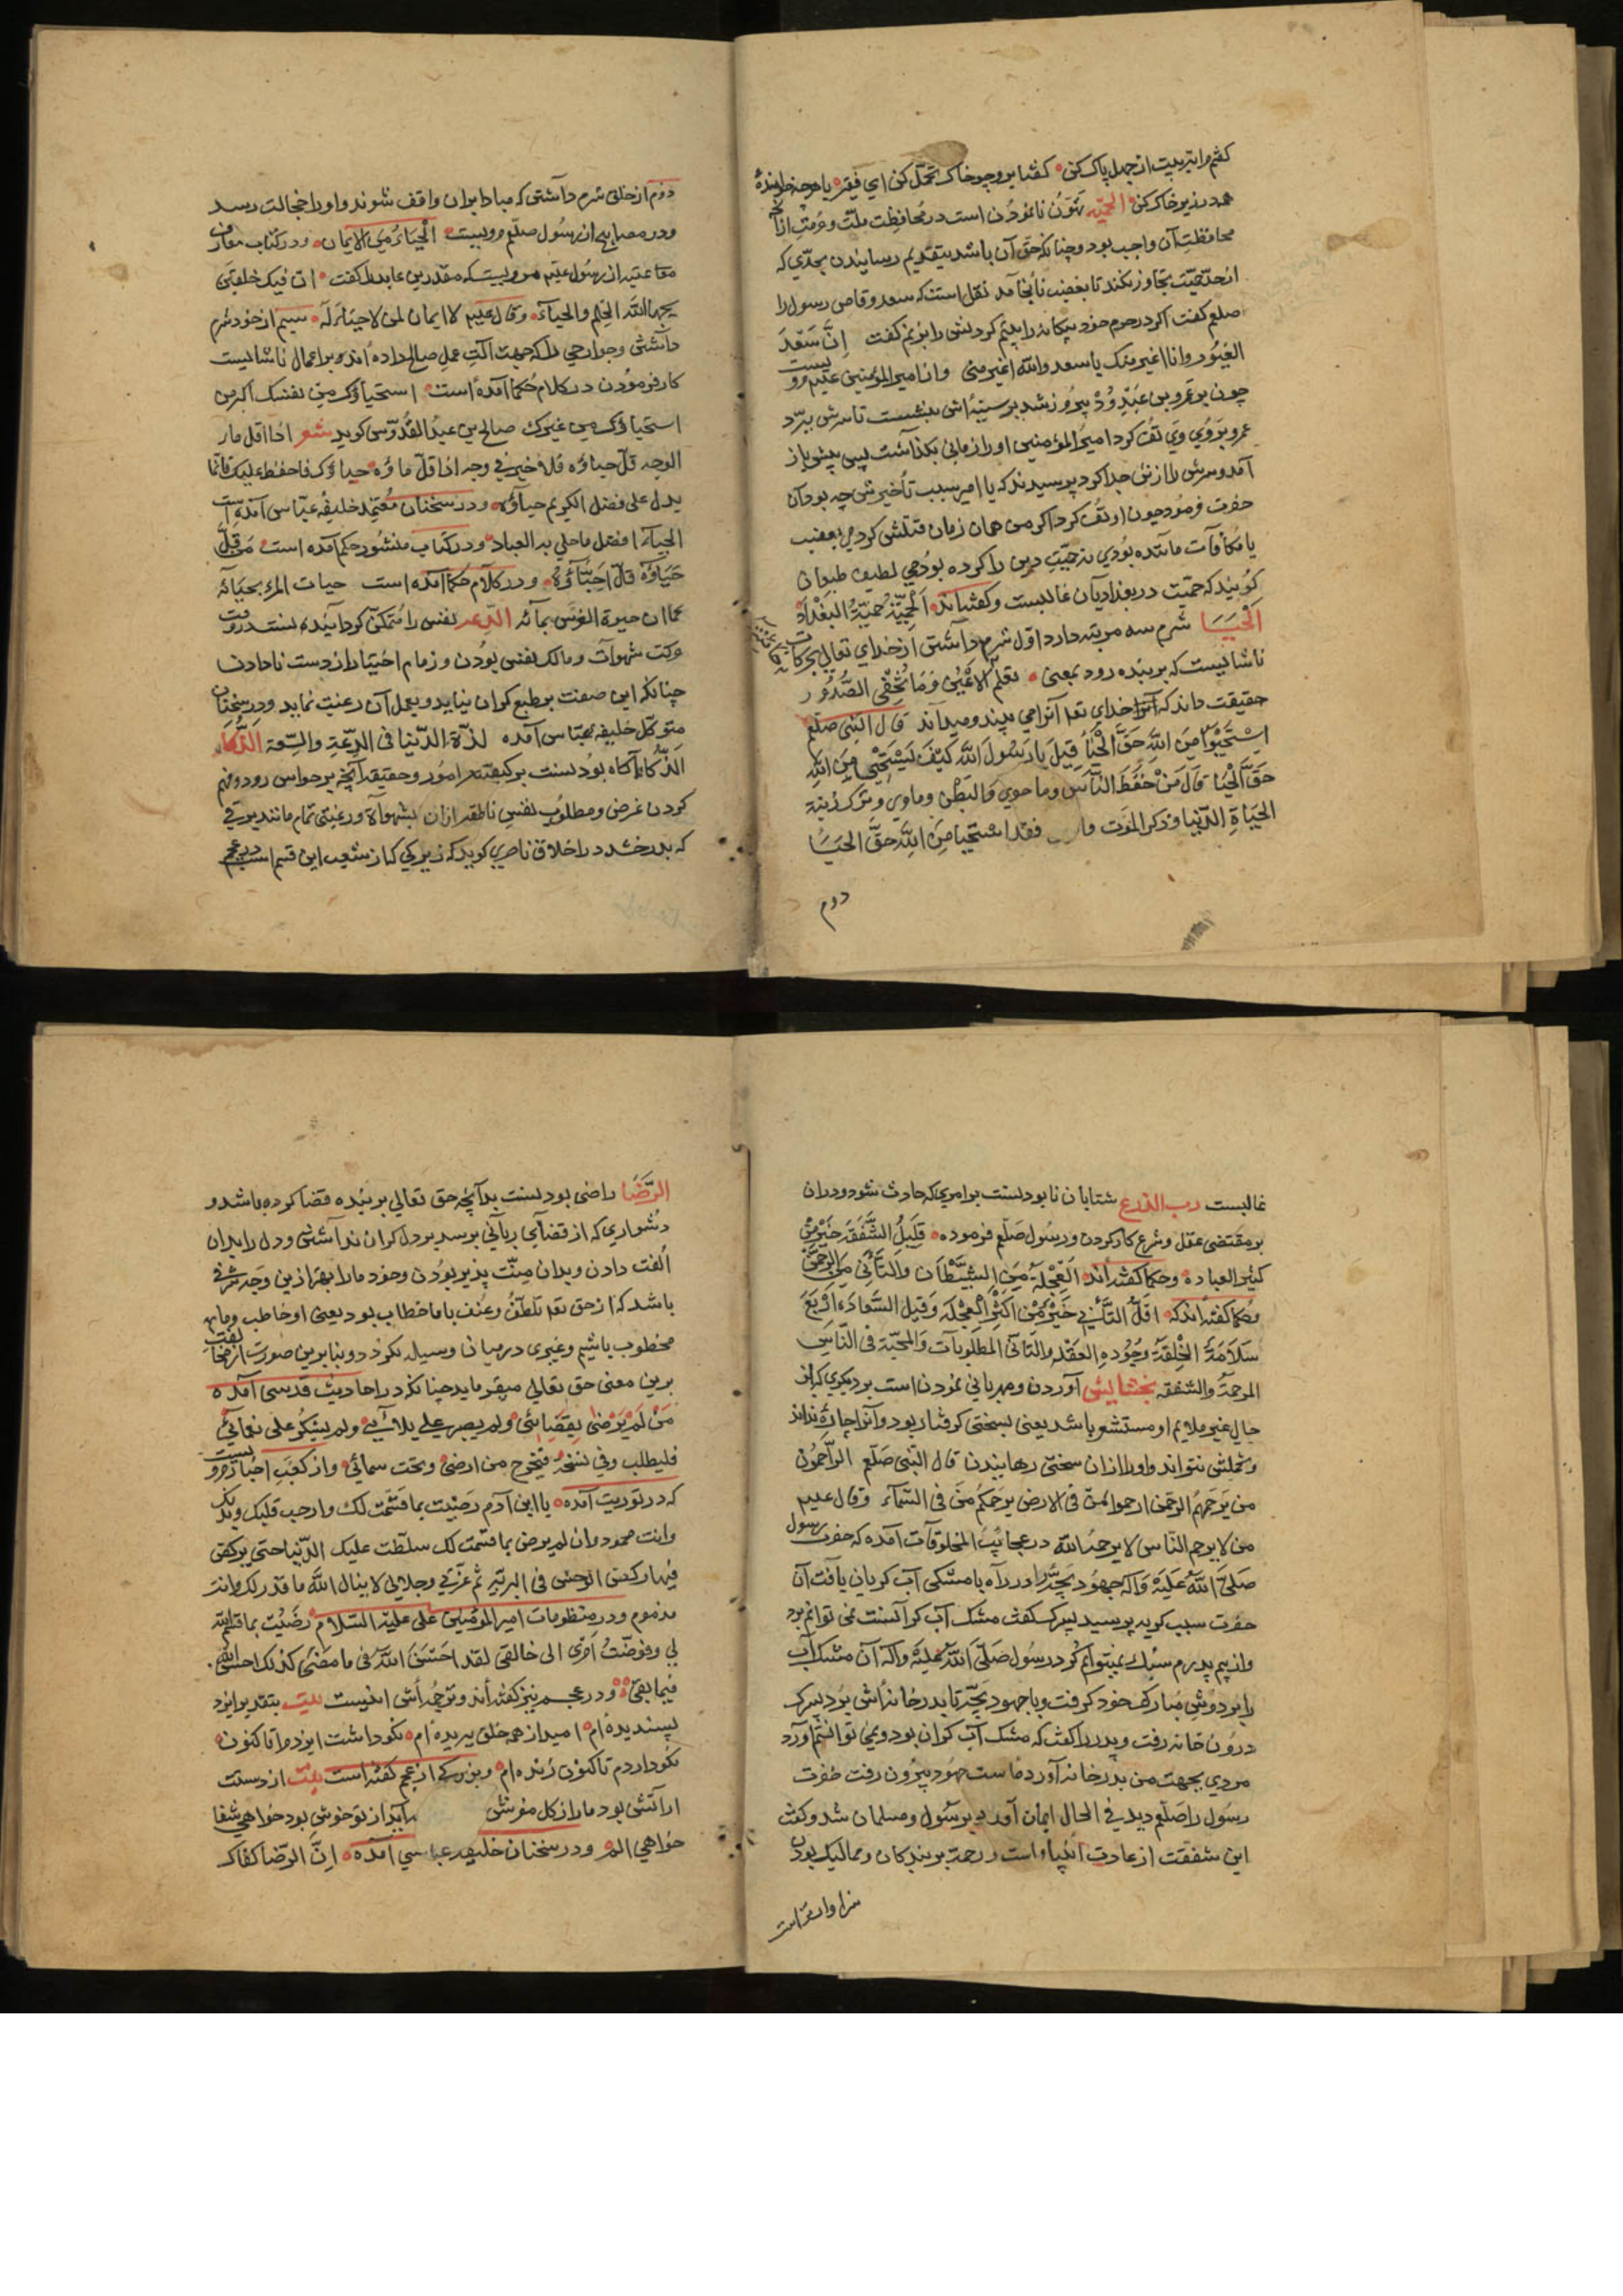 گفتم مرا بتربیت از جهل پاک کن گفتا برو چو خاک تحمّل کن ای فقیر یا هرچه خوانده
همه در زیر خاک کن الحمیّه تهوّن نانمودن است در محافظت ملّت و حرمت از آنچ
محافظت آن واجب بود و چنانکه حق آن باشد بتقدیم رسانیدن بحدّی که
از حدّ حمیّت تجاوز نکند تا بغضب نانجامد نقل است که سعد وقاص رسول را
صلعم گفت اگر در حرم خود بیکانه را بینم گردنش را بزنم گفت اِنَّ سَعْدَ
الغیُور وانا اغیر منک یا سعد والله اغیر منی و از امیر المؤمنین علیم مرویست
چون بر عَمرو بن عَبْدِ وُدْ پیروز شد بر سینه‌اش بنشست تا سرش ببرّد
عمرو بَروُی وَی تف کرد امیر المؤمنین او را زمانی بگذاشت پس پیش باز
آمد و سرش را از تن جدا کرد پرسیدند که یا امیر سبب تأخیر تو چه بود آن
حضرت فرمود چون او تُف کرد اگر من همان زمان قتلش کردمی بغضب
یا مکافآت ماننده بُودی نه حمیّت دین را کرده بودمی لطیف طبعان
گویند که حمیّت در بغدادیان غالبست و گفته‌اند اَلْحمِیّةُ حُمیّةُ البَغْدادِ
اَلْحَیَــا شرم سه مرتبه دارد اوّل شرم داشتن از خدای تعالی بحرکات
ناشایست که بر بنده رود بمعنی یعلم الاَعْیُنِ وَمَا تُخْفِی الصُّدُور
حقیقت داند که آنرا خدای تعا آنرا می بیند و میداند قال النبی صلعم
اِسْتَحْیُوا مِنَ اللهِ حَقَّ الْحَیَا قِیلَ یا رَسُولَ اللهِ کَیْفَ نَسْتَحْیِی مِنَ اللهِ
حَقَّ الْحَیَا قالَ مَنْ حَفَظَ الرَّأسَ وما حوی وَالبَطْنَ وماوعی وَتَرَکَ زِینةَ
الحَیَاةِ الدّنْیا وذکر الموَت فقد استحیا مِنَ اللهِ حَقَّ الحَیَــا
دوم
دوّم از خلق شرم داشتن که مبادا بر آن واقف شوند و او را خجالت رسد
ودر مصابیح از رسُول صلّعم مرویست الْحَیَاءُ مِنَ الایمانِ ودر کتاب معارف
بحبهما اللهُ الحِلم والحیآء وقال علیم لا ایمان لمن لا حیاءَ لَه سیم از خود شرم
داشتن و جوارحی را که جهت آلت عمل صالح داده‌اند بر اعمال ناشایست
کار فرمودن در کلام حُکما آمده است استحیاؤک من نفسک اکثر من
استحیاؤک من غیرک صالح بن عبدُ القُدُّوس گوید شعر اذا قل مآء
الوجه قلّ حیاؤه فلا خیر فی وجه اذا قلّ ماؤه حیاؤک فاحفظه علیک فانّما
یدل علی فضل الکریم حیاؤه ودر سخنان مُعتمد خلیفهٔ عبّاس آمده است
الحَیَاءُ افضل ماحلی به العباد ودر کتاب منشور حکم آمده است مَن قَلَّ
حَیَاؤُهُ قَلَّ اَحِبَّاؤُهُ ودر کلام حکما آمده است حیات المرء بحیآئه
کما ان حیوة الغرس بمآئه الدّعه نفس را مُتمکّن گردانیدنست در وقت
حرکت شهوات و مالک نفس بُودن و زمام اختیار از دست نادادن
چنانکه این صفت بر طبع گران نیاید و بعمل آن رغبت نماید ودر سخنان
متوکّل خلیفهٔ عبّاس آمده لذّة الدّنیا فی الدِّعَةِ والسِّعة الذّکاء
الَذَّکاءُ آگاه بودنست بر کیفیّت امُور و حقیقة آنچه بر حواس رود و فهم
کردن غرض و مطلوُب نفسِ ناطقه از آن بشهوآة و رغبتی تمام مانند برقی
که بدرخشد در اخلاق ناصری گوید که زیرکی که از شعب این قسم است در عجم
غالبست رحب الذرع شتابان نابودنست بر امری که حادث شود و در آن
بر مقتضی عقل و شرع کار کردن و رسُول صلّعم فرموده قَلیلُ الشَّفَقَة خَیْرٌ مِنْ
کثیر العباده وحکما گفته‌اند اَلْعِجْلَةُ مِنَ الشَّیْطَانِ وَالتَّأَنِّی مِنَ الرَّحْمَن
وحُکما گفته‌اند که اقَلُّ التَّأَنِّی خَیْرٌ مِنْ اَکْثَرِ الْعِجْلَه وَقِیل السَّعَادَة اَرْبَعَ
سَلَامَةُ الْخِلقَةِ وَجُودُهِ العَقْد والتَّأنّی المطلوبات وَالمحبّة فی النّاسِ
المرحمَة والشفقه بخشایش آوردن و مهربانی نمودن است بر دیگری که از
حالی غیر ملایم او مستشعر باشد یعنی بسختی گرفتار بود و آنرا چاره نداند
وتحملش نتواند و او را از آن سختی رهانیدن قال النّبی صَلّعم الرَّاحمُون
من یَرحَمهُم الرحمن ارحموا مَن فی الارض یَرحَمکُم مَن فی السَّمآءِ وقال علیم
من لا یرحم النّاس لا یرحمهُ الله در عجائبُ المخلوقآت آمده که حضرت رسول
صَلَّی اللهُ عَلَیْهِ وَآلِه جهُود بَچّهٔ را در راه با مشکی آب گریان یافت آن
حضرت سبب گریه پرسید پسرک گفت مشک آب گرانست نمی توانم برد
واز بیم پدرم سبُک نمیتوانم کرد رسُول صَلّی اللهُ عَلَیهِ وآله آن مشک آب
را بر دوش مُبارک خود گرفت و با جهود بچّه تا بدر خانه‌اش بُرد پسرک
درون خانه رفت و پدر را گفت که مشک آب گران بود و نمی توانستم آورد
مردی بجهت من بدر خانه آورده است جهُود بیرون رفت حضرت
رسول را صَلّعم دید فی الحال ایمان آورد برسُول و مسلمان شد و گفت
این شفقت از عادت انبیا و است و رحمت بر بندگان و ممالیک بودن
سزاوار تر است
الرِّضَا راضی بودنست بدآنچه حق تعالی بر بنده قضا کرده باشد و
دشواری که از قضآی ربآنی برسد بر دل گران نداشتن و دل را بدان
اُلفت دادن و بدان مِنّت پذیر بوُدن و خود ما را بهتر ازین وجه شرفی
باشد که از حق تعا تلطُّف وعُنف با ما خطاب بود یعنی او خاطب وما
مخطوب باشیم و غیری در میان وسیله نگردد و بنابرین صورت
برین معنی حق تعالی میفرماید چنانکه در احادیث قدسی آمده
مَنْ لَمْ یَرْضَی بِقَضَائی ولم یصبر علی بلآئی ولم یشکر علی نعمآئی
فلیطلب فتخرج من ارضی وتحت سمآئی واز کعب احبار مرویست
که در توریت آمده یا ابن آدم رَضِیت بما قَسَمْت لک وارحب قلبک وبدنک
وانت محمود وان لم یرض بما قسمت لک سلّطت علیک الدّنیا حتی یرکض
فیها رکض الوحش فی البرّیّه ثُم عزتی وجلالی لا ینال اللّه ما قدر لک وانت
مذموم ودر منظومات امیر الموُمنین علی علیه السّلام رضیْتُ بما قسم الله
لی وفوضتُ اَمْری الی خالقی لقد احْسَنَ اللّه فی ما مضَی کذلک احسن
فیما بقی ودر عجم نیز گفته‌اند و ترجُمه‌اش اینست بیت بتقدیر ایزد
پسندیده‌ام امید از همه خلق ببریده‌ام نکو داشت ایزد مرا تا کنون
نکو داردم تا کنون زنده‌ام وبزرگی از عجم گفته است بیت از دست
ار آتش بود ما را ز گل مفرش هرآنچه از تو خوش بود خواهی شفا
خواهی الم ودر سخنان خلیفه عباسی آمده اِنَّ الرّضا کفاک